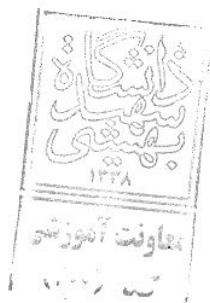 دانشگاه
شهید
بهشتی
۱۳۳۸
معاونت آموزشی